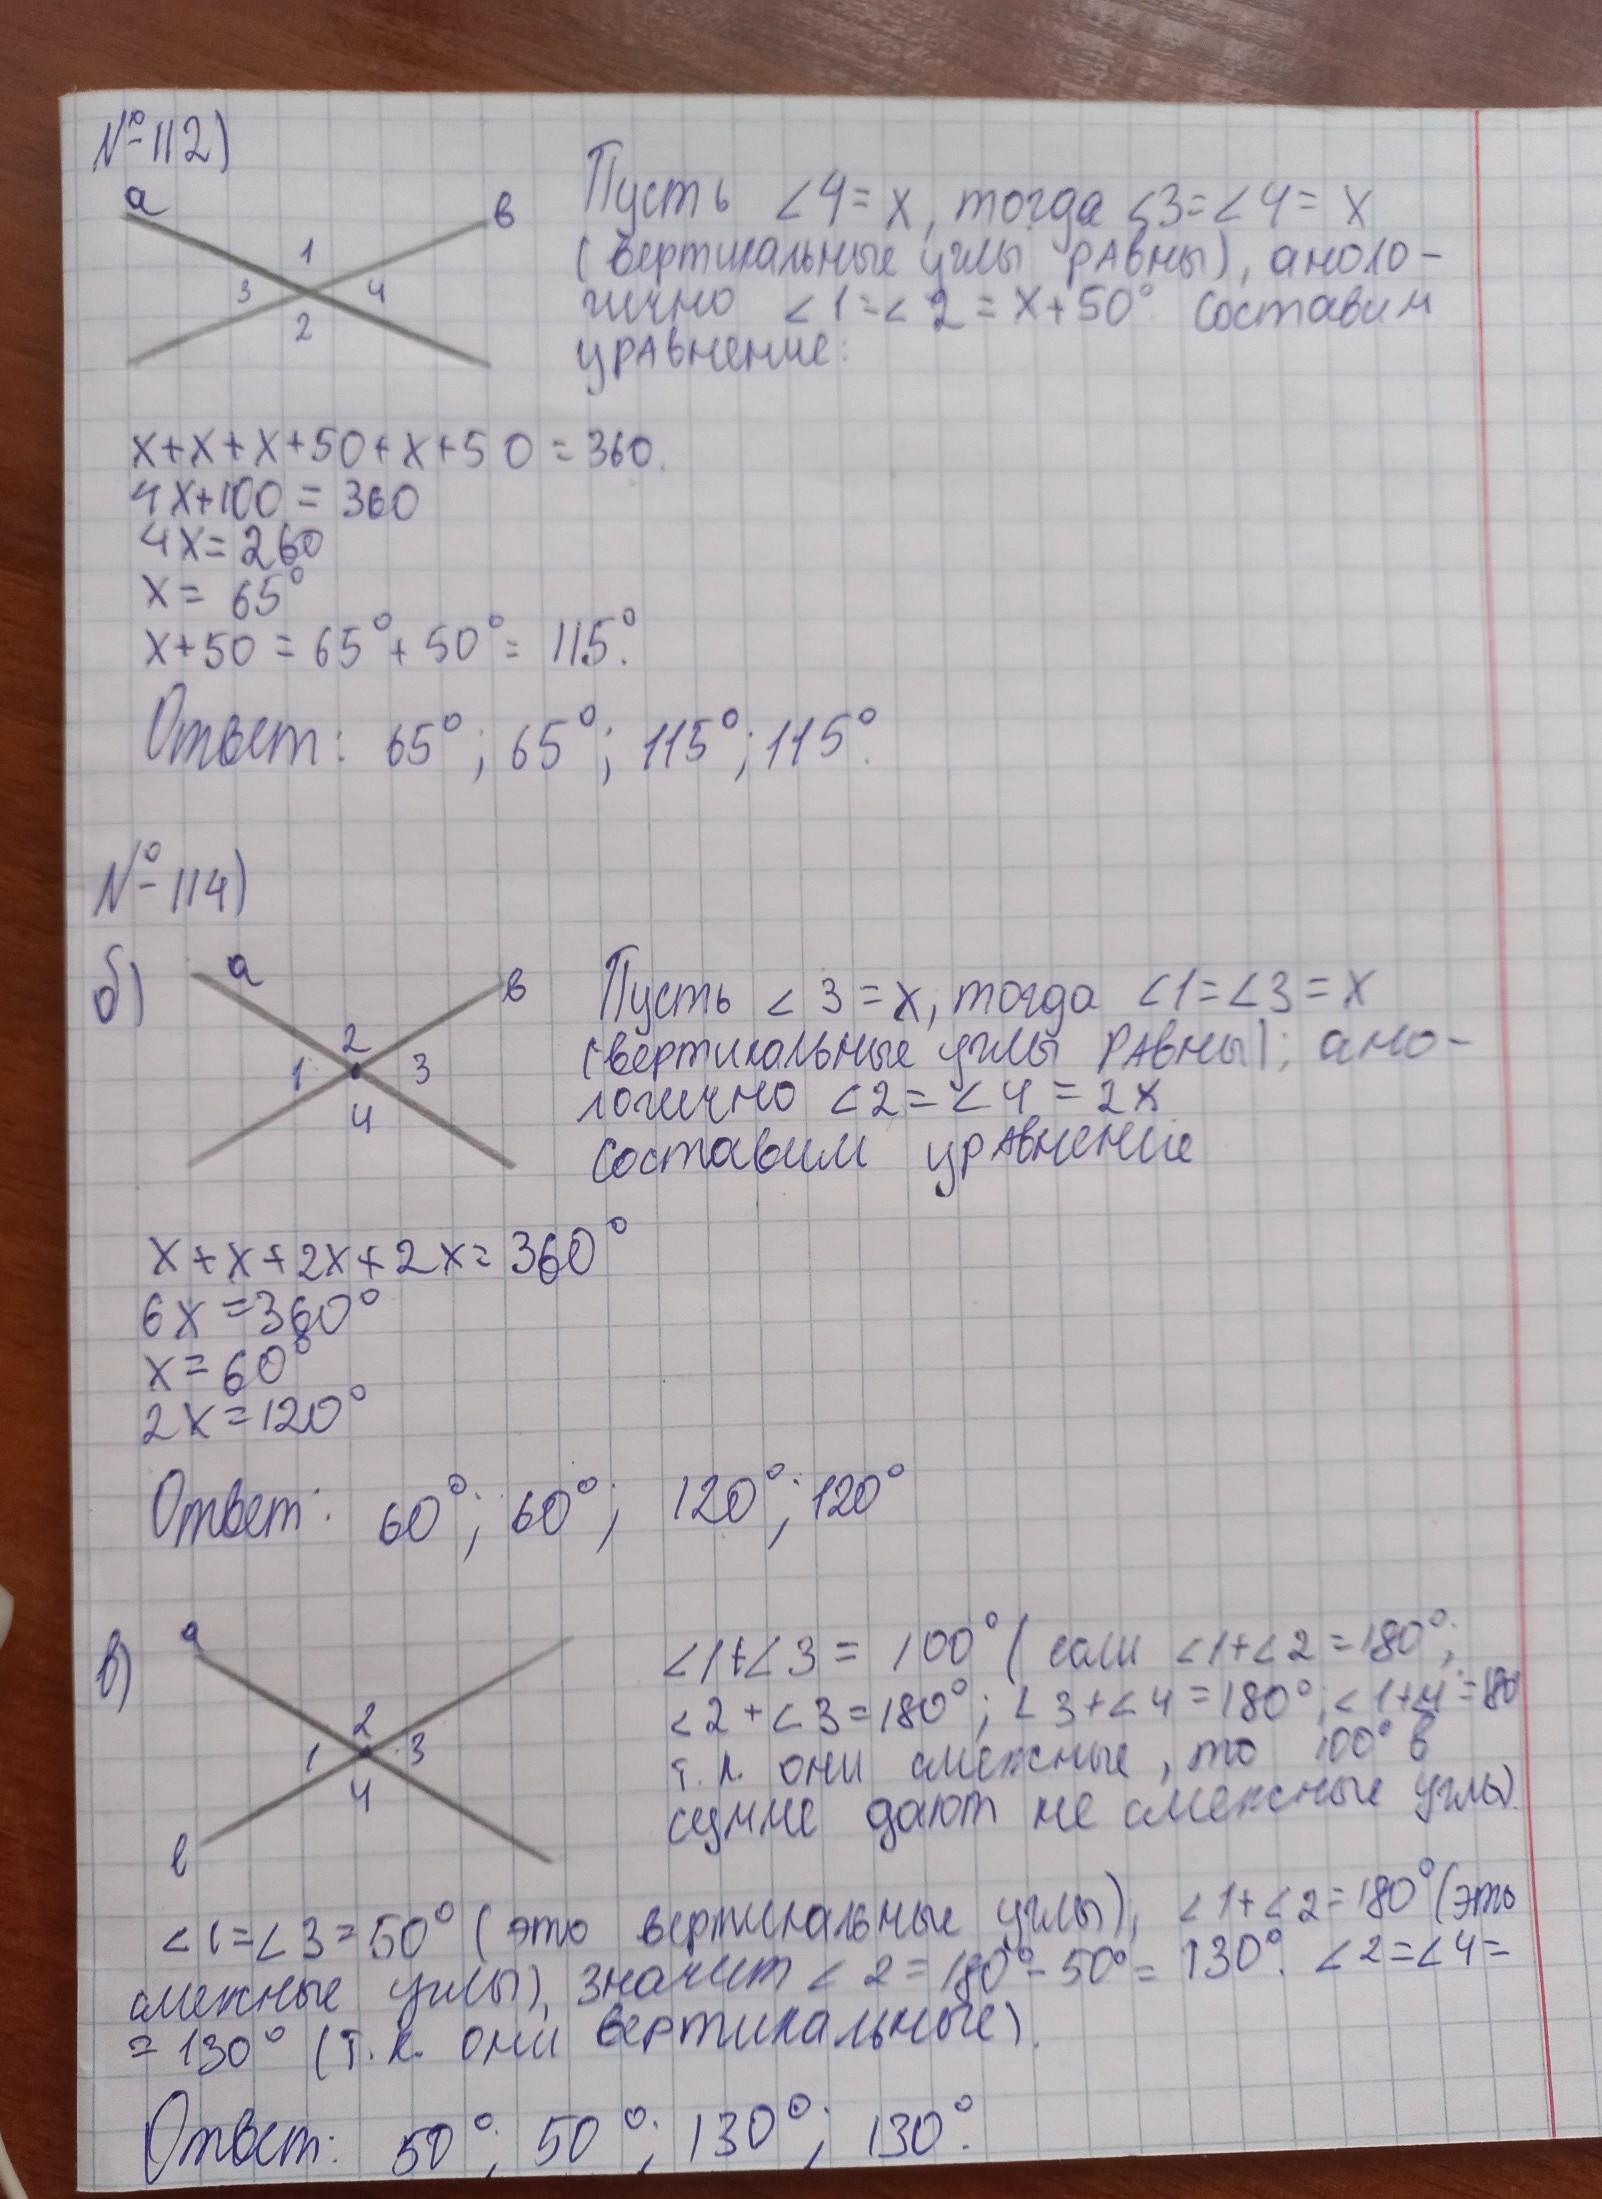 №112)
а
в
1
3
4
2
Пусть ∠4 = x, тогда ∠3=∠4= x
(вертикальные углы равны), аноло-
гично ∠1=∠2 = x+50°. Составим
уравнение:
x+x+x+50+x+50 = 360.
4x+100 = 360
4x=260
x= 65°
x+50 = 65°+50°= 115°.
Ответ: 65°; 65°; 115°; 115°.
№114)
б)
а
в
2
1
3
4
Пусть ∠3 = x, тогда ∠1=∠3 = x
(вертикальные углы равны); ано-
логично ∠2=∠4 = 2x
Составим уравнение
x+x+2x+2x=360°
6x=360°
x=60°
2x=120°
Ответ: 60°; 60°; 120°; 120°
в)
а
2
1
3
4
в
∠1+∠3 = 100° (если ∠1+∠2=180°;
∠2+∠3=180°; ∠3+∠4=180°; ∠1+4=180
т.к. они смежные, то 100° в
сумме дают не смежные углы).
∠1=∠3=50° (это вертикальные углы), ∠1+∠2=180° (это
смежные углы), значит ∠2=180°-50°= 130°. ∠2=∠4=
= 130° (т.к. они вертикальные).
Ответ: 50°; 50°; 130°; 130°.